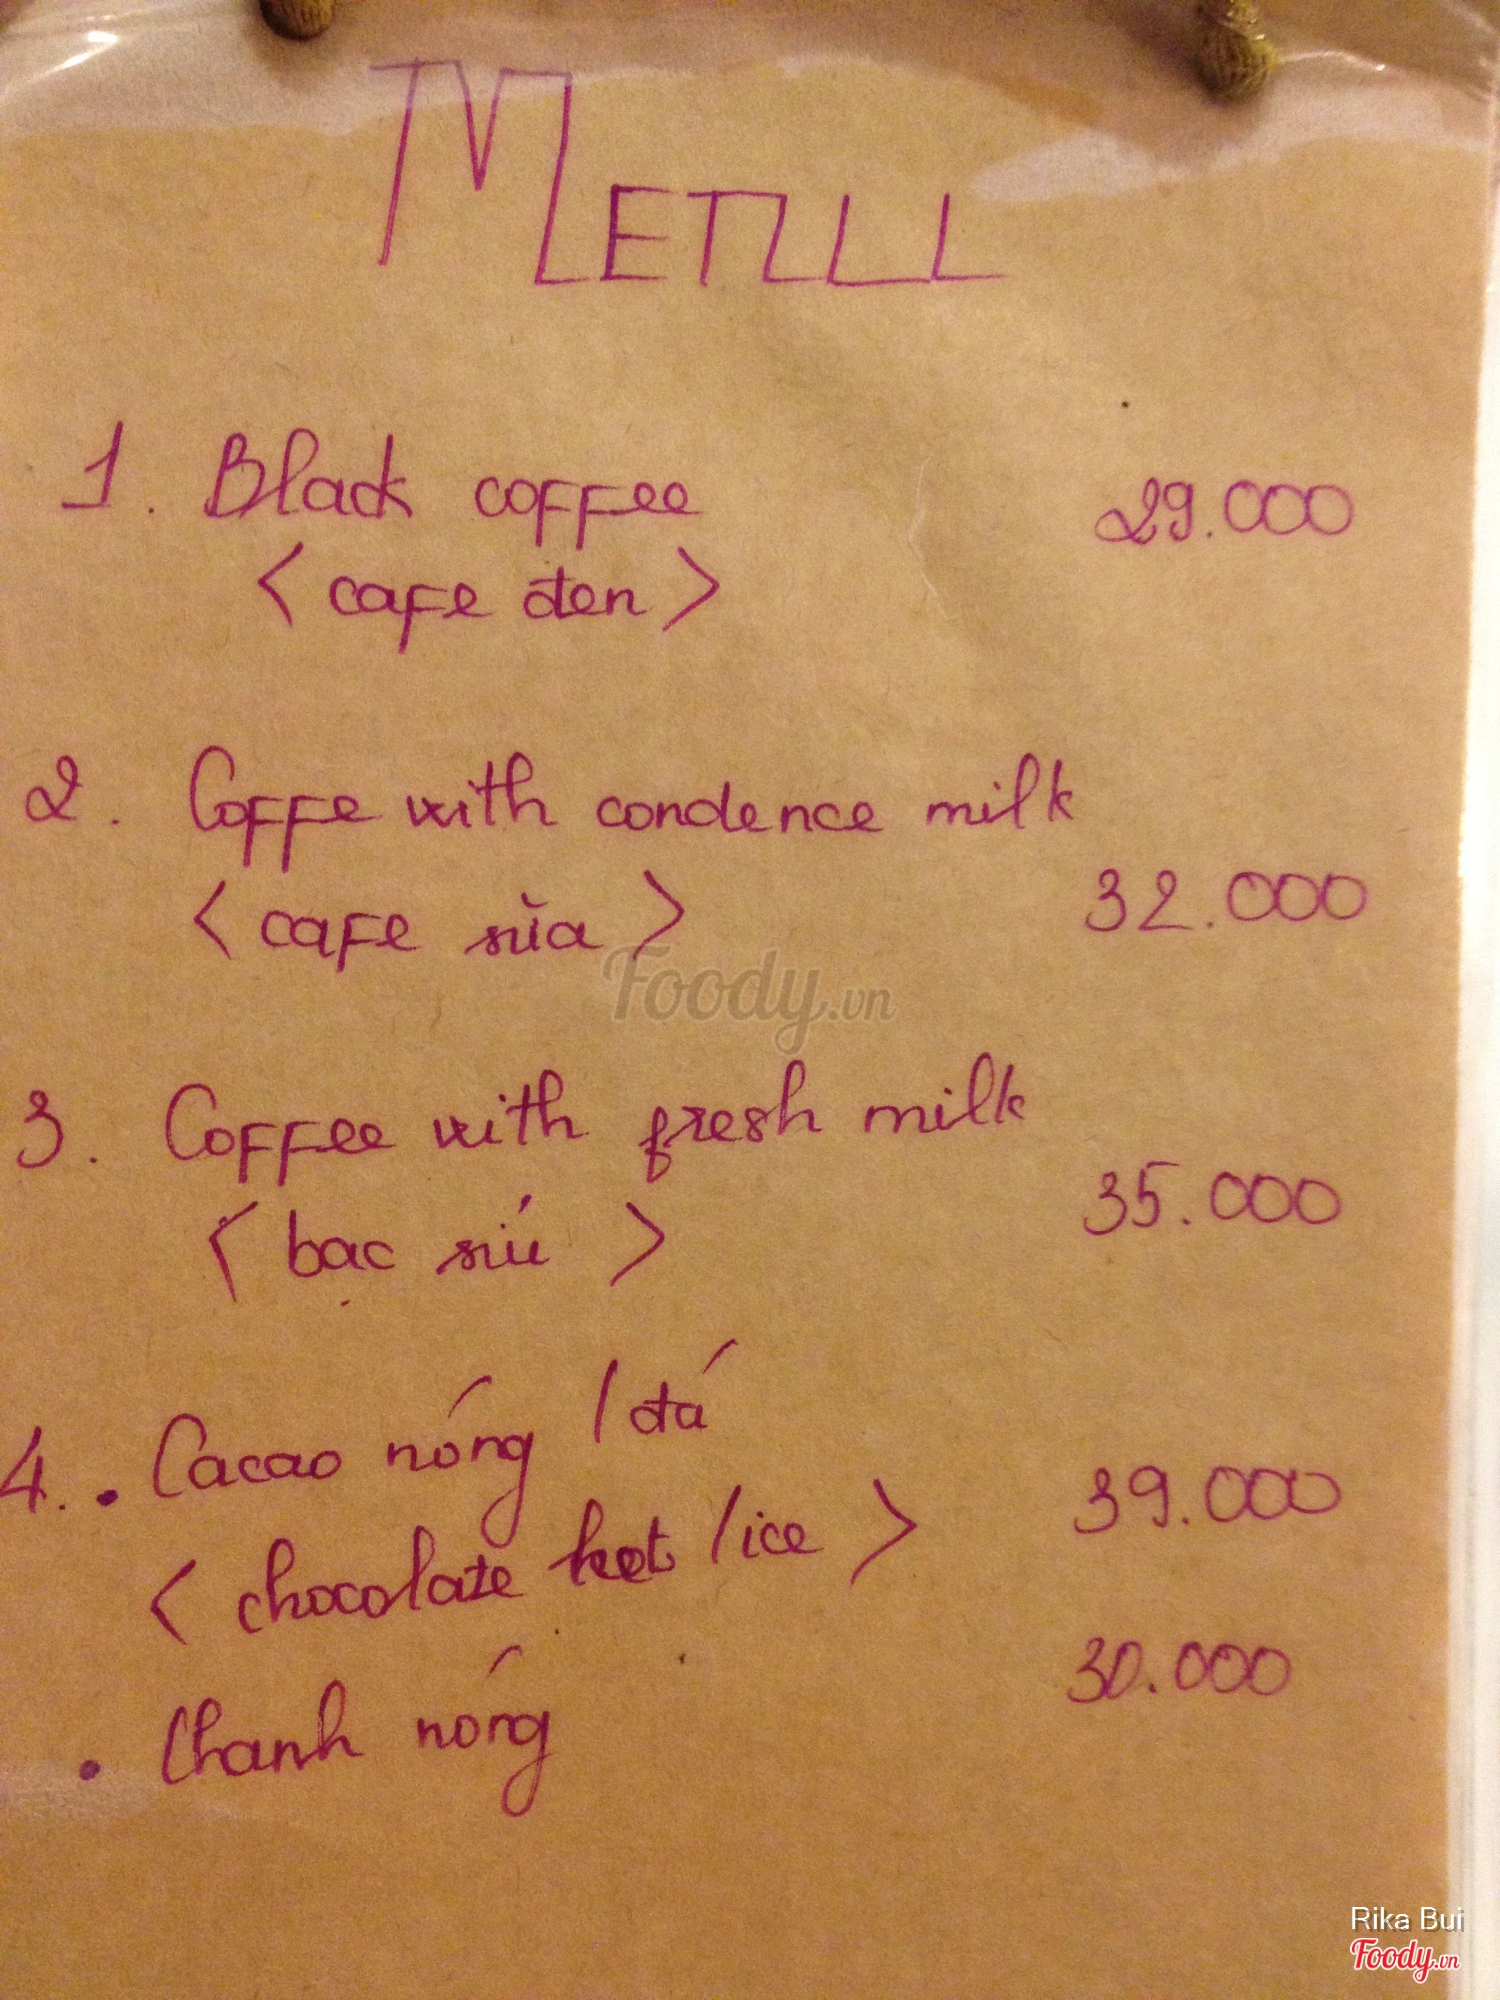 MENU
1. Black coffee 29.000
< cafe đen >
2. Coffe with condence milk
< cafe sữa > 32.000
Foody.vn
3. Coffee with fresh milk
< bạc siủ > 35.000
4. • Cacao nóng / đá
< chocolate hot / ice > 39.000
• Chanh nóng 30.000
Rika Bui
Foody.vn